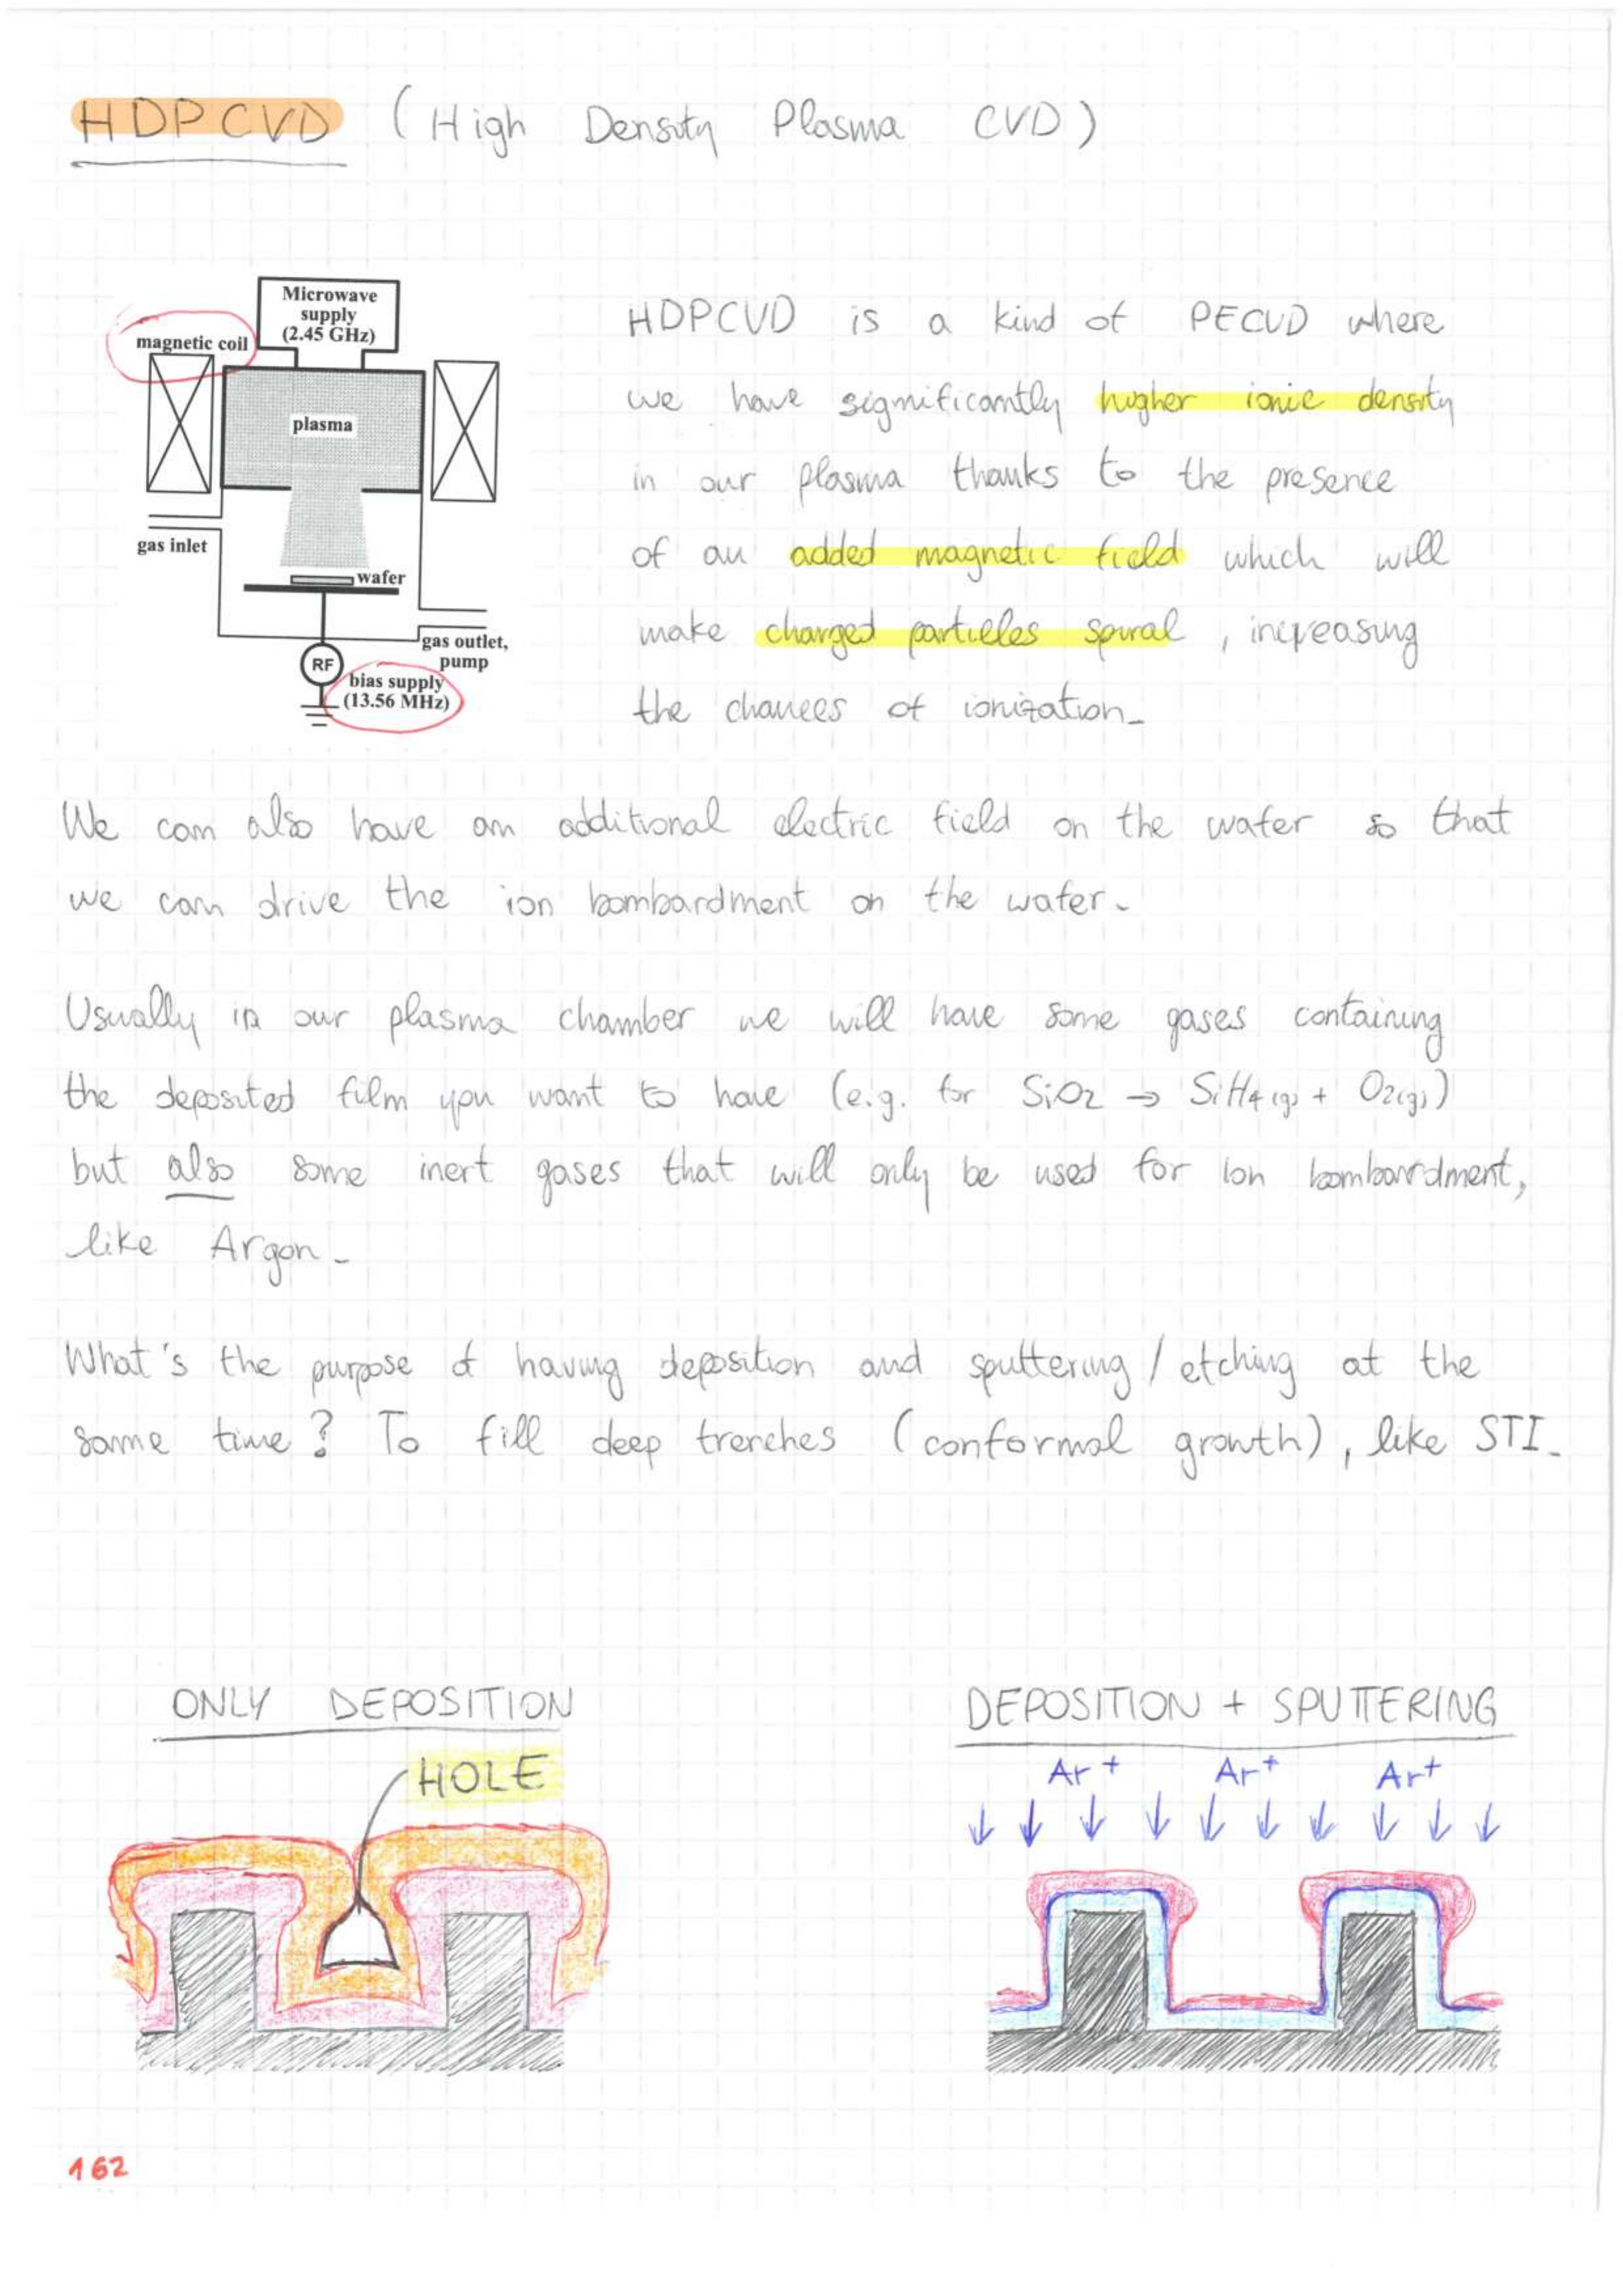 HDPCVD (High Density Plasma CVD)
Microwave
supply
(2.45 GHz)
magnetic coil
plasma
gas inlet
wafer
gas outlet,
pump
RF
bias supply
(13.56 MHz)
HDPCVD is a kind of PECVD where
we have significantly higher ionic density
in our plasma thanks to the presence
of an added magnetic field which will
make charged particles spiral, increasing
the chances of ionization-
We can also have an additional electric field on the wafer so that
we can drive the ion bombardment on the wafer-
Usually in our plasma chamber we will have some gases containing
the deposited film you want to have (e.g. for SiO2 → SiH4 (g) + O2(g))
but also some inert gases that will only be used for ion bombardment,
like Argon-
What's the purpose of having deposition and sputtering / etching at the
same time? To fill deep trenches (conformal growth), like STI-
ONLY DEPOSITION
HOLE
DEPOSITION + SPUTTERING
Ar+ Ar+ Ar+
162